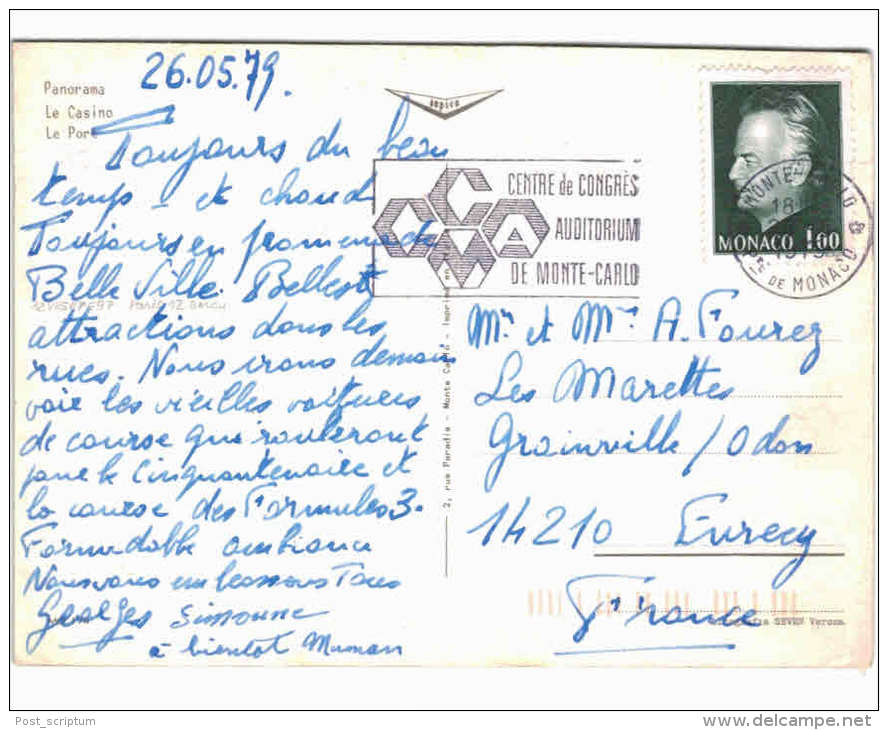 Panorama
Le Casino
Le Port
26.05.79.
Toujours du beau
temps - et chaud
Toujours en promenade
Belle Ville. Belles
attractions dans les
rues. Nous irons demain
voir les vieilles voitures
de course qui rouleront
pour le Cinquantenaire et
la course des Formules 3.
Formidable ambiance
Nous vous embrassons Tous
Georges Simonne
à bientot Maman
2, rue Paradis - Monte Carlo - Imprimé en
CENTRE de CONGRÈS
AUDITORIUM
DE MONTE-CARLO
MONACO 1.60
MONTE-CARLO
18
DE MONACO
Mr et Mme A. Fourez
Les Marettes
Grainville / Odon
14210 Evrecy
France
SEVEN Verona
Post_scriptum
www.delcampe.net